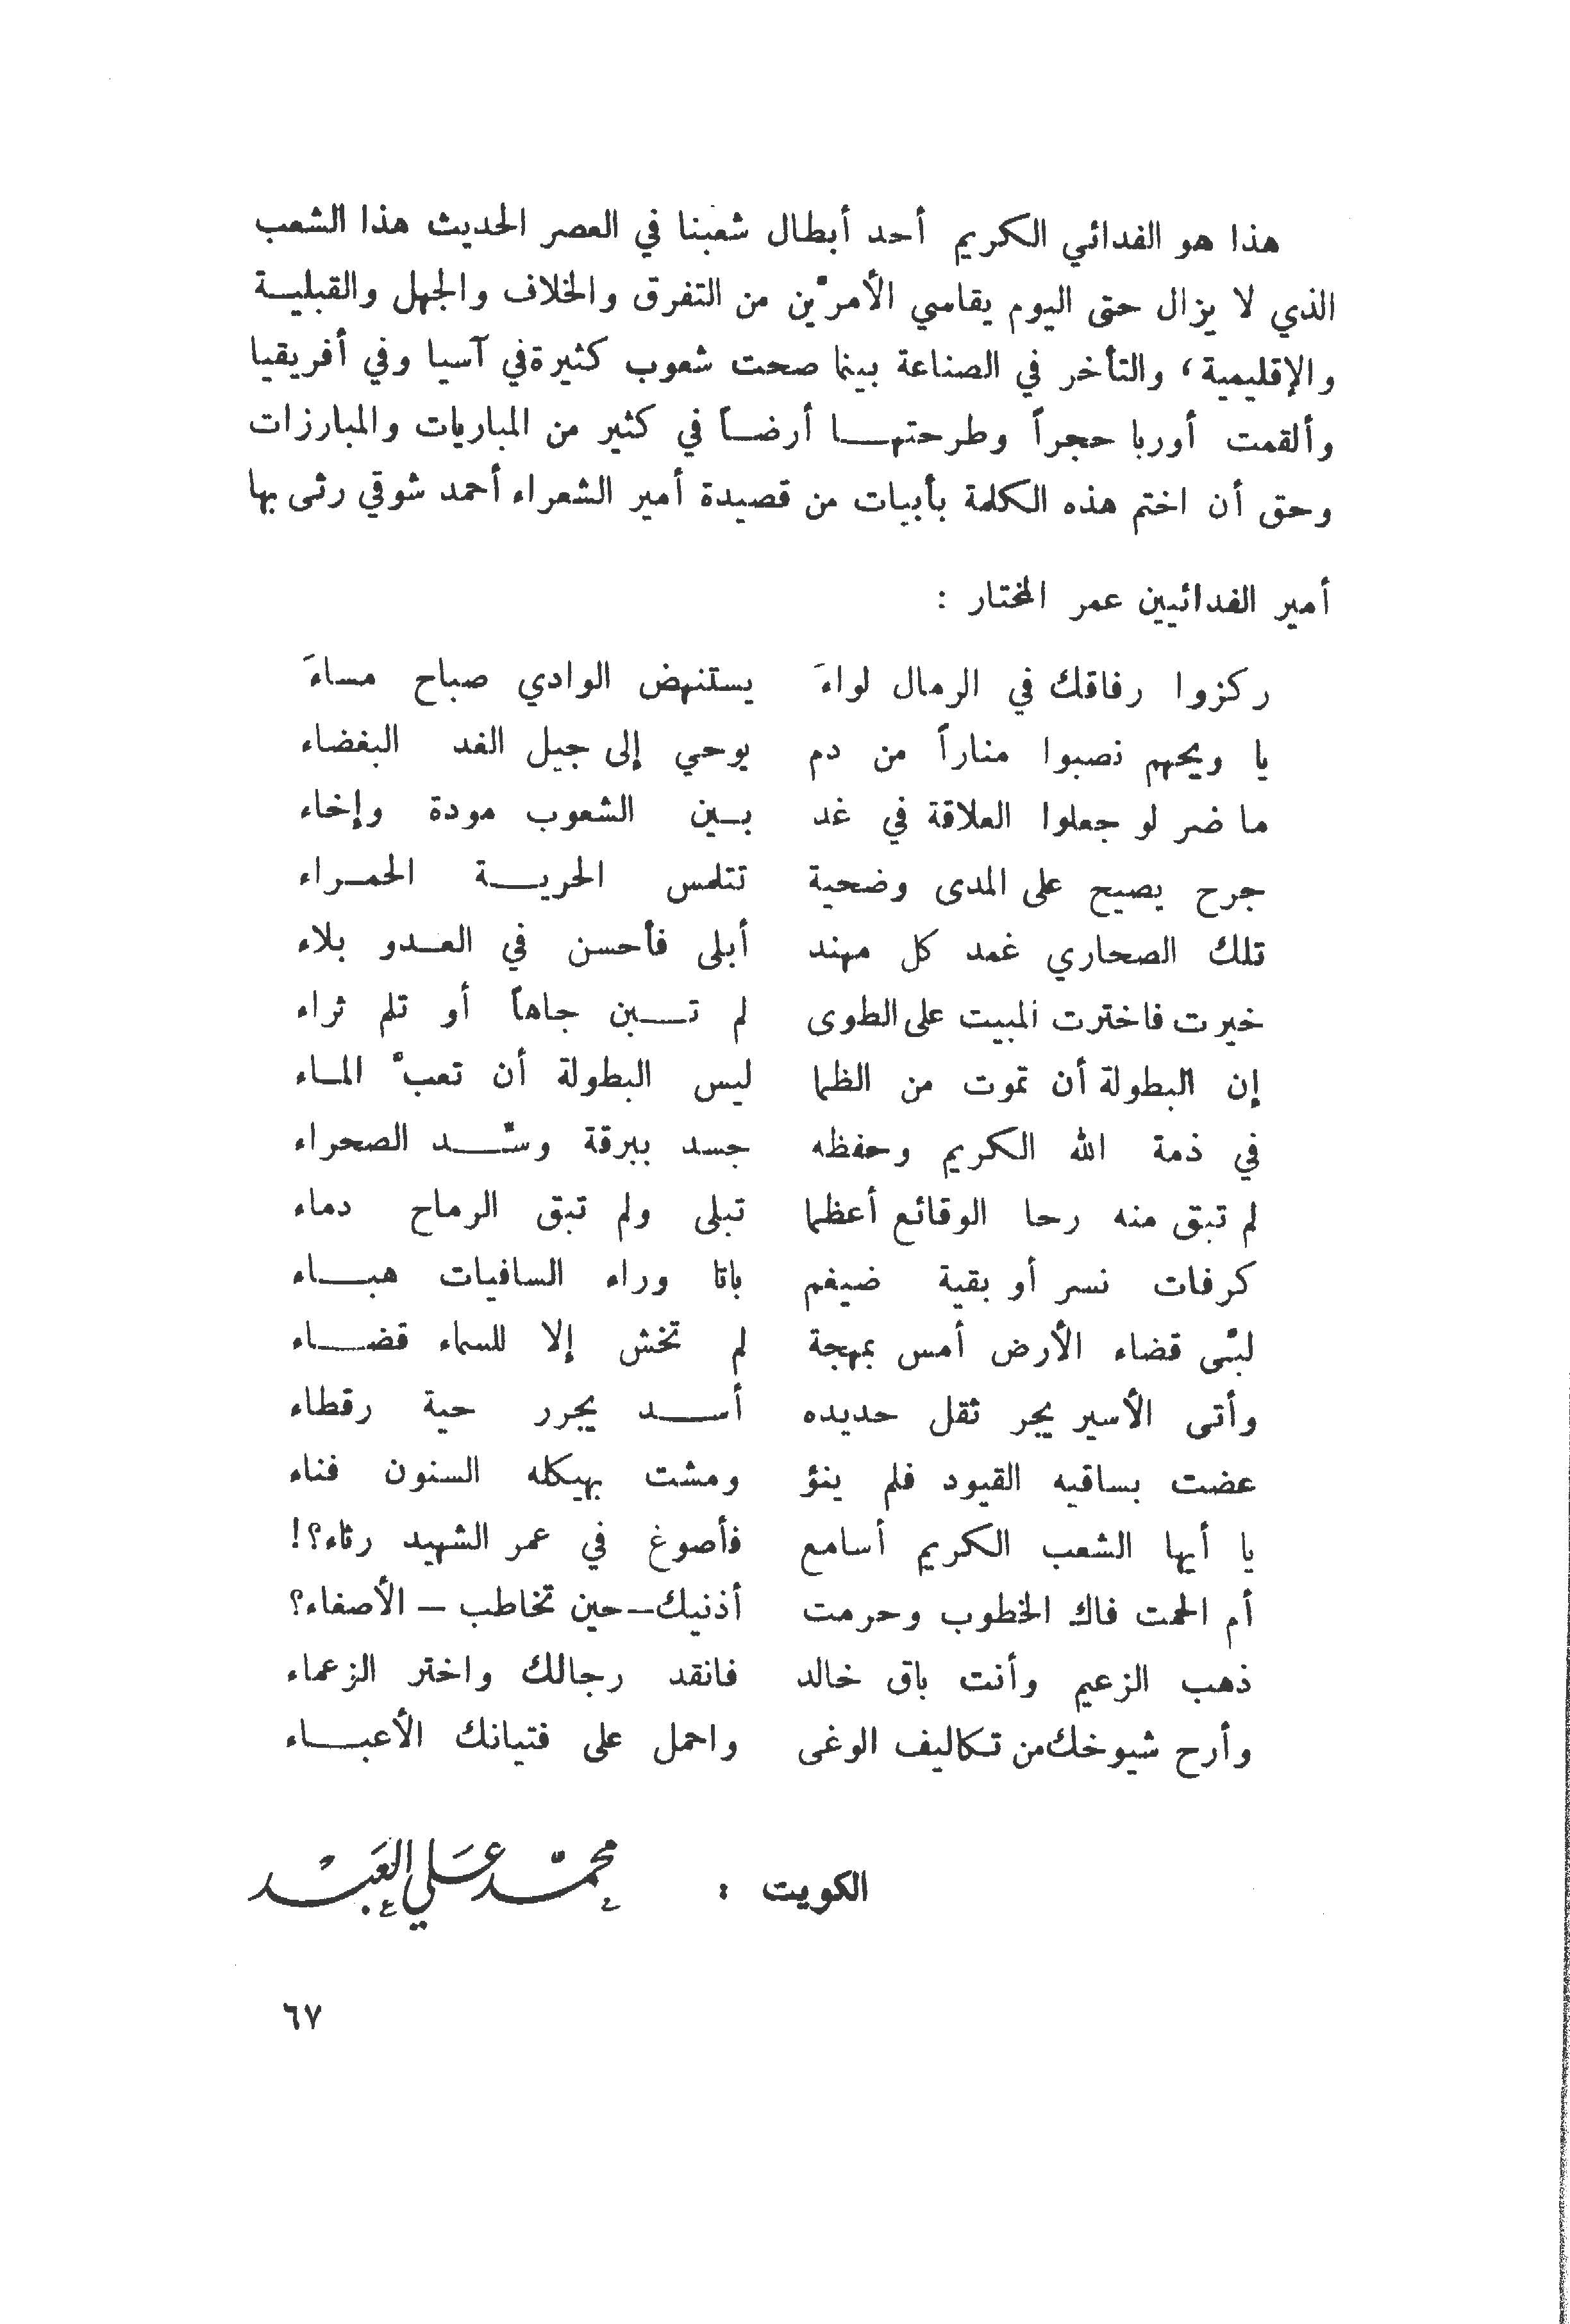 هذا هو الفدائي الكريم أحد أبطال شعبنا في العصر الحديث هذا الشعب
الذي لا يزال حتى اليوم يقاسي الأمرّين من التفرق والخلاف والجهل والقبليـة
والإقليمية، والتأخر في الصناعة بينما صحت شعوب كثيرة في آسيا وفي أفريقيا
وألقمت أوربا حجراً وطرحتهــا أرضـاً في كثير من المباريات والمبارزات
وحق أن اختم هذه الكلمة بأبيات من قصيدة أمير الشعراء أحمد شوقي رثى بها
أمير الفدائيين عمر المختار :
ركزوا رفاقك في الرمال لواءَ يستنهض الوادي صباح مساءَ
يا ويحهم نصبوا مناراً من دم يوحي إلى جيل الغد البغضاء
ما ضر لو جعلوا العلاقة في غد بـين الشعوب مودة وإخاء
جرح يصيح على المدى وضحية تتلمس الحريــة الحمـراء
تلك الصحاري غمد كل مهند أبلى فأحسن في العـدو بلاء
خيرت فاخترت المبيت على الطوى لم تــبن جاهاً أو تلم ثراء
إن البطولة أن تموت من الظما ليس البطولة أن تعبّ المـاء
في ذمة الله الكريم وحفظه جسد ببرقة وسّــد الصحراء
لم تبق منه رحا الوقائع أعظما تبلى ولم تبق الرماح دماء
كرفات نسر أو بقية ضيغم باتا وراء السافيات هبــاء
لبّى قضاء الأرض أمس بمهجة لم تخش إلا للسماء قضــاء
وأتى الأسير يجر ثقل حديده أســد يجرر حية رقطاء
عضت بساقيه القيود فلم ينؤ ومشت بهيكله السنون فناء
يا أيها الشعب الكريم أسامع فأصوغ في عمر الشهيد رثاء؟!
أم الحمت فاك الخطوب وحرمت أذنيك – حين تخاطب – الأصغاء؟
ذهب الزعيم وأنت باق خالد فانقد رجالك واختر الزعماء
وأرح شيوخك من تكاليف الوغى واحمل على فتيانك الأعبــاء
الكويت : محمّد عَلي العَبْد
٦٧